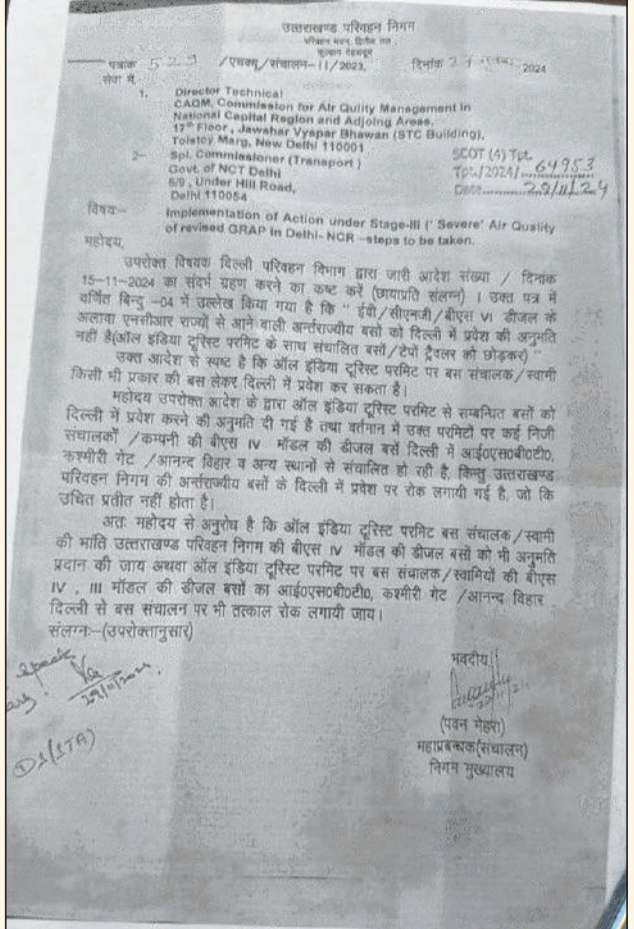 उत्तराखण्ड परिवहन निगम
परिवहन भवन, द्वितीय तल,
कुल्हान देहरादून
पत्रांक 523 /एचक्यू/संचालन-II/2023, दिनांक 2024
सेवा में,
1. Director Technical
CAQM, Commission for Air Qulity Management in
National Capital Region and Adjoing Areas.
17th Floor, Jawahar Vyapar Bhawan (STC Building),
Tolstoy Marg, New Delhi 110001
2- Spl. Commissioner (Transport)
Govt. of NCT Delhi
5/9, Under Hill Road,
Delhi 110054
SCOT (A) Tpt.
Tpt./2024/ 64953
Date 29/11/24
विषयः- Implementation of Action under Stage-III (' Severe' Air Quality
of revised GRAP in Delhi- NCR –steps to be taken.
महोदय,
उपरोक्त विषयक दिल्ली परिवहन विभाग द्वारा जारी आदेश संख्या / दिनांक
15-11-2024 का संदर्भ ग्रहण करने का कष्ट करें (छायाप्रति संलग्न) । उक्त पत्र में
वर्णित बिन्दु -04 में उल्लेख किया गया है कि " ईवी/सीएनजी/बीएस VI डीजल के
अलावा एनसीआर राज्यों से आने वाली अर्न्तराज्यीय बसों को दिल्ली में प्रवेश की अनुमति
नहीं है(ऑल इंडिया टूरिस्ट परमिट के साथ संचालित बसों/टेपों ट्रैवलर को छोड़कर) "
उक्त आदेश से स्पष्ट है कि ऑल इंडिया टूरिस्ट परमिट पर बस संचालक/स्वामी
किसी भी प्रकार की बस लेकर दिल्ली में प्रवेश कर सकता है।
महोदय उपरोक्त आदेश के द्वारा ऑल इंडिया टूरिस्ट परमिट से सम्बन्धित बसों को
दिल्ली में प्रवेश करने की अनुमति दी गई है तथा वर्तमान में उक्त परमिटों पर कई निजी
संचालकों /कम्पनी की बीएस IV मॉडल की डीजल बसें दिल्ली में आई0एस0बी0टी0,
कश्मीरी गेट /आनन्द विहार व अन्य स्थानों से संचालित हो रही है, किन्तु उत्तराखण्ड
परिवहन निगम की अर्न्तराज्यीय बसों के दिल्ली में प्रवेश पर रोक लगायी गई है, जो कि
उचित प्रतीत नहीं होता है।
अतः महोदय से अनुरोध है कि ऑल इंडिया टूरिस्ट परमिट बस संचालक/स्वामी
की भांति उत्तराखण्ड परिवहन निगम की बीएस IV मॉडल की डीजल बसों को भी अनुमति
प्रदान की जाय अथवा ऑल इंडिया टूरिस्ट परमिट पर बस संचालक/स्वामियों की बीएस
IV , III मॉडल की डीजल बसों का आई0एस0बी0टी0, कश्मीरी गेट /आनन्द विहार
दिल्ली से बस संचालन पर भी तत्काल रोक लगायी जाय।
संलग्नः-(उपरोक्तानुसार)
भवदीय
(पवन मेहरा)
महाप्रबन्धक(संचालन)
निगम मुख्यालय
speak
29/11/2024
D1(STA)